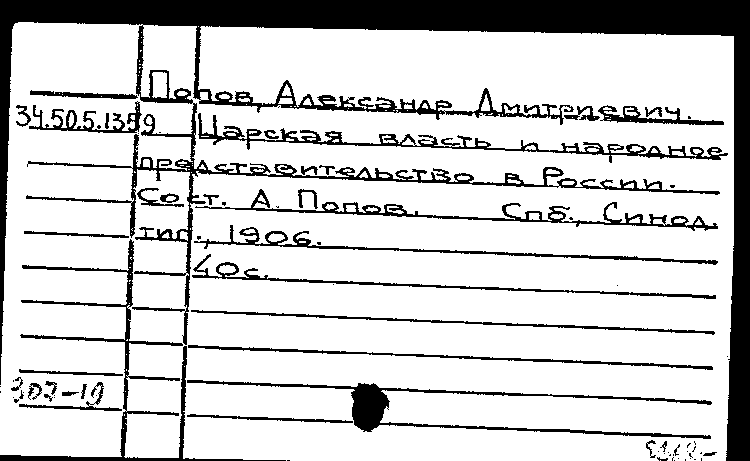 Попов, Александр Дмитриевич.
34.50.5.1359 Царская власть и народное
представительство в России.
Сост. А. Попов. Спб., Синод.
тип., 1906.
40с.
307-19